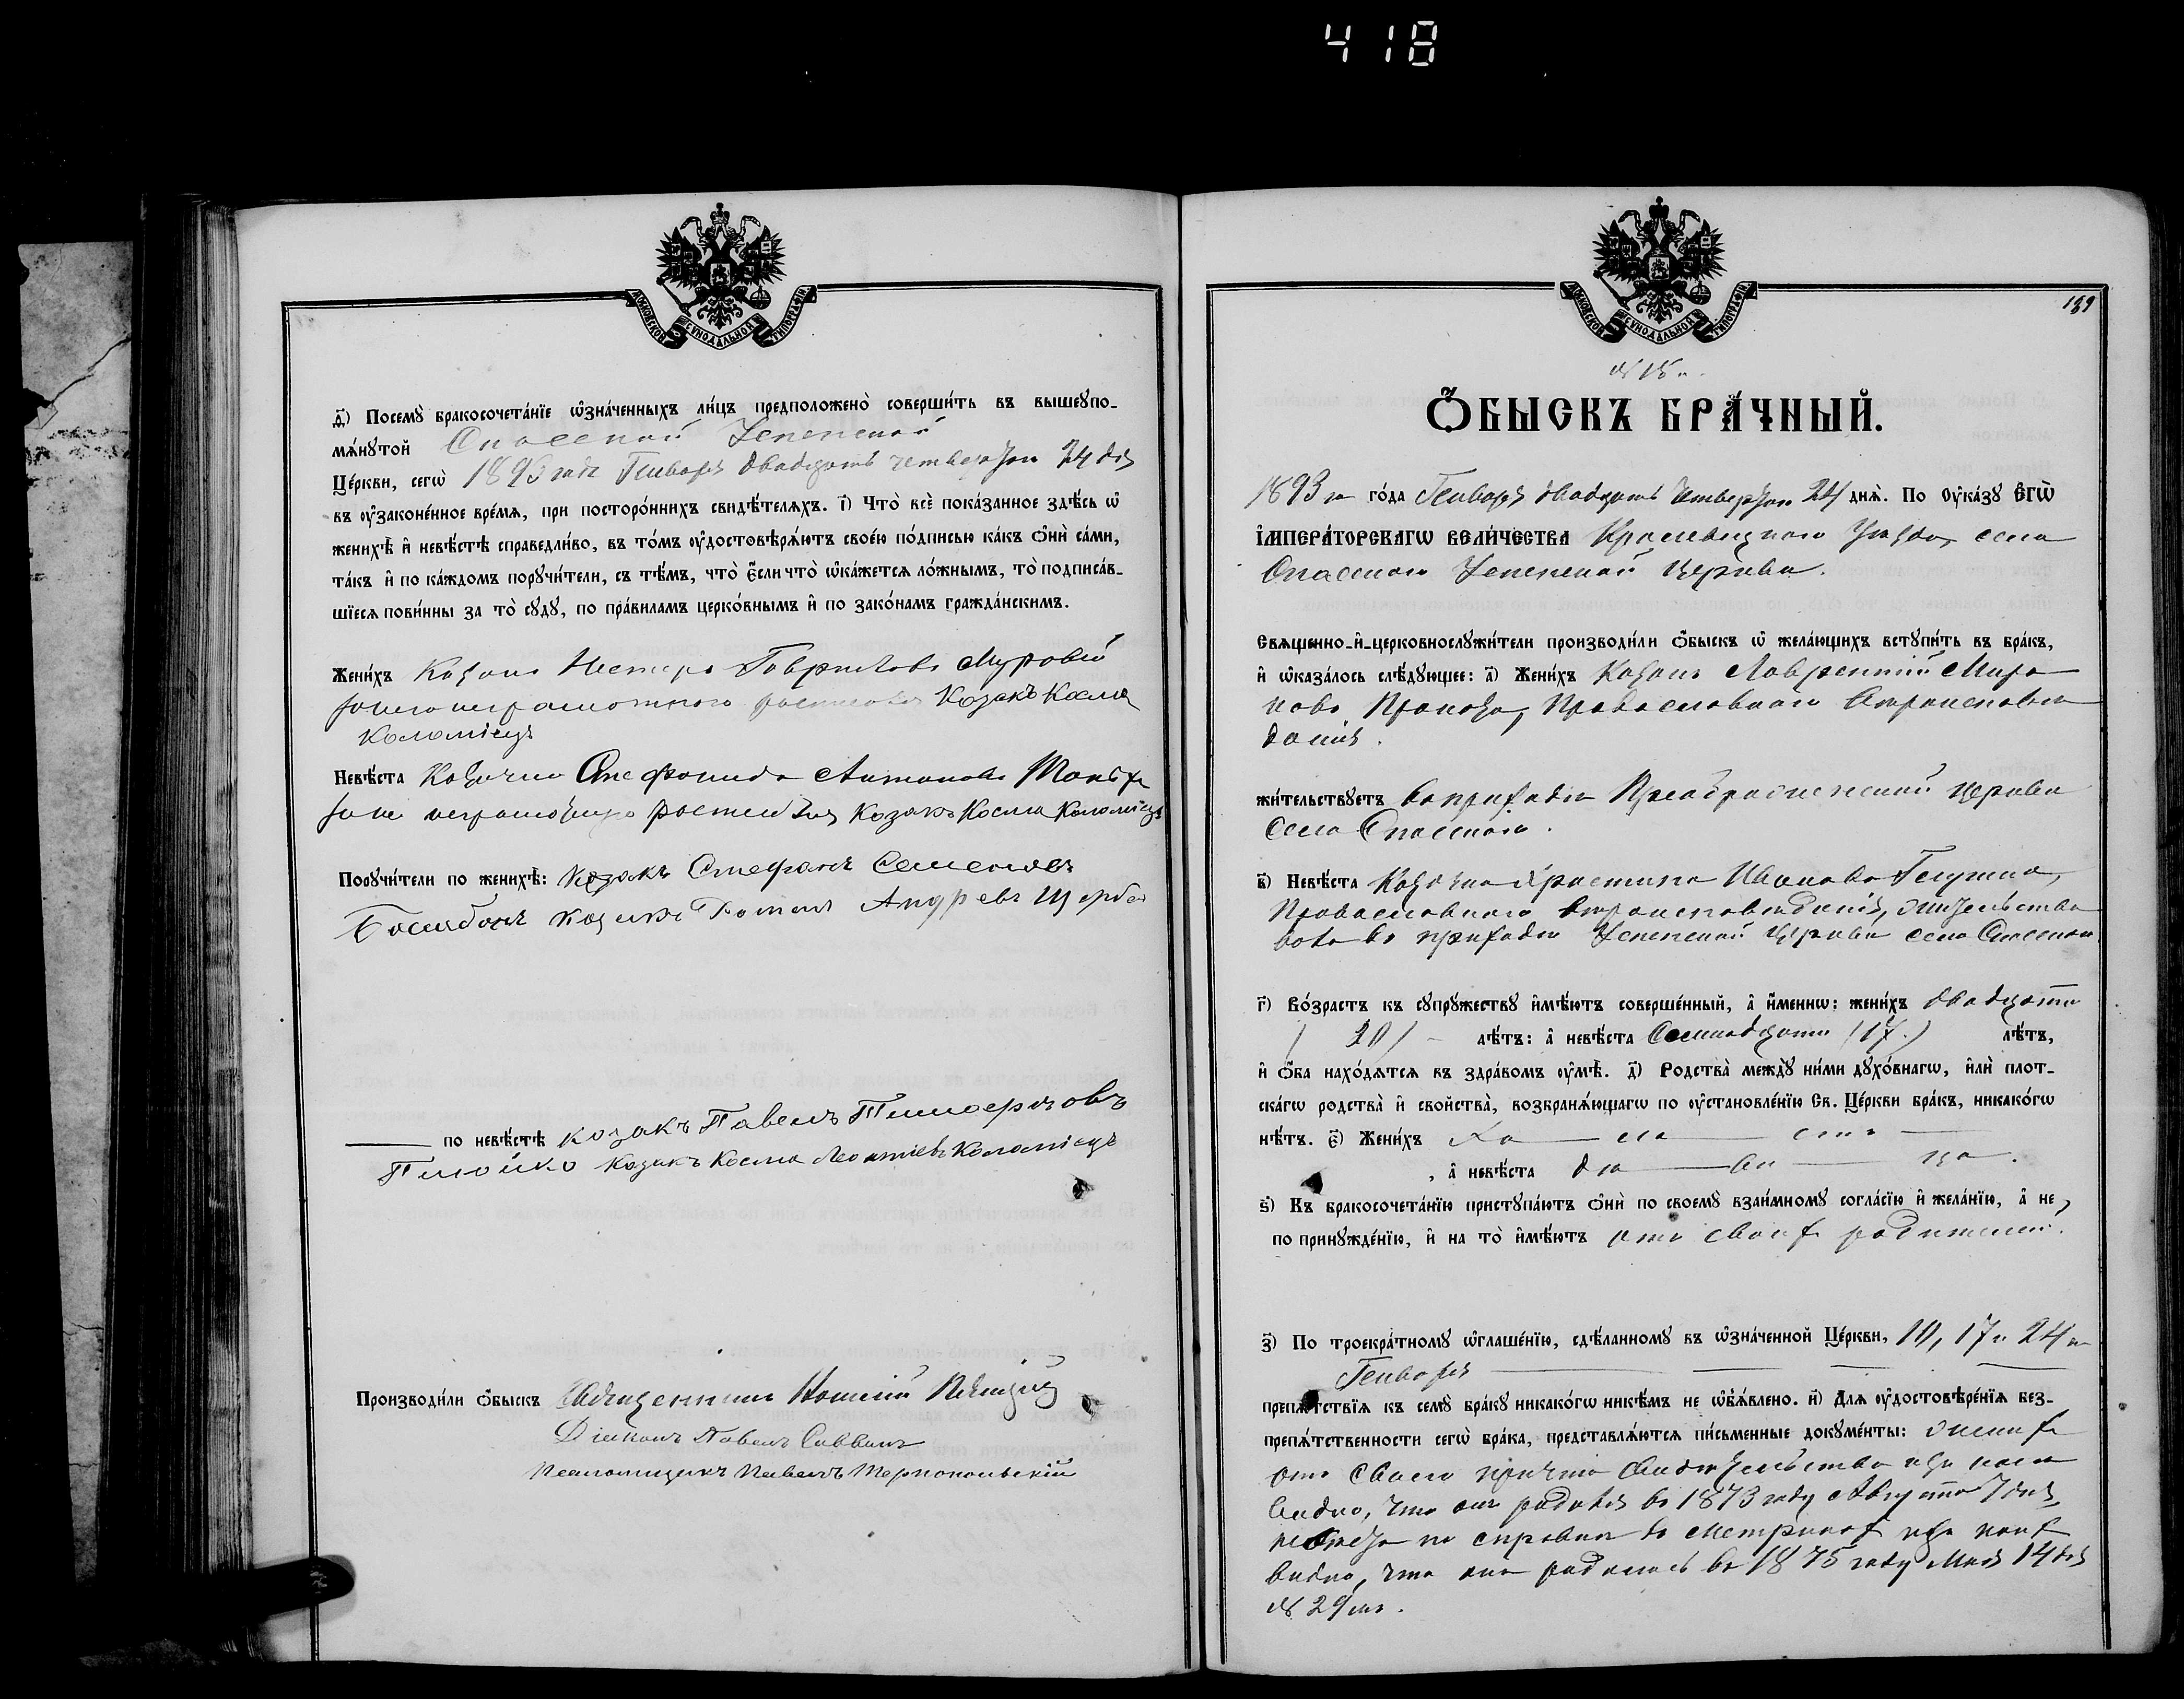 418
МОСКОВСКОЙ СУНОДАЛЬНОЙ ТИПОГРАФІИ
д҃) Посемꙋ̀ бракосочета́нїе ѡ҆зна́ченныхъ ли́цъ предположено̀ соверши́ть въ вышеꙋпо-
мѧ́нꙋтой Спасской Успенской
Це́ркви, сегѡ̀ 1893 года Генваря двадцать четвертого 24 дня
въ ᲂу҆законе́нное вре́мѧ, при посторо́ннихъ свидѣ́телѧхъ. і҃) Что̀ всѐ пока́занное здѣ́сь ѡ҆
женихѣ̀ и҆ невѣ́стѣ справедли́во, въ то́мъ ᲂу҆достовѣрѧ́ютъ свое́ю по́дписью ка́къ ѻ҆нѝ са́ми,
та́къ и҆ по ка́ждомъ порꙋчи́тели, съ тѣ́мъ, что̀ є҆́сли что̀ ѡ҆ка́жетсѧ ло́жнымъ, то̀ подписа́в-
шїесѧ пови́нны за то̀ сꙋдꙋ̀, по пра́виламъ церко́внымъ и҆ по зако́намъ гражда́нскимъ.
Жени́хъ Козакъ Несторъ Гавриловъ Муровій
Козакъ Косма
Коломіецъ
Невѣ́ста Козачка Стефанида Антонова
неграмотную росписался Козакъ Косма Коломіецъ
Порꙋчи́тели по женихѣ̀: Козакъ Стефанъ Семеновъ
козакъ Потапъ Андреевъ Щерба
по невѣ́стѣ козакъ Павелъ
Козакъ Косма Леонтіевъ Коломіецъ
Производи́ли ѻ҆́быскъ Священникъ
Діаконъ Павелъ Саввинъ
Псаломщикъ Павелъ Тернопольскій
МОСКОВСКОЙ СУНОДАЛЬНОЙ ТИПОГРАФІИ
189
№ 18й.
Ѻ҆́БЫСКЪ БРА́ЧНЫЙ.
1893 го го́да Генваря двадцать четвертого 24 днѧ̀. По ᲂу҆ка́зꙋ Є҆ГѠ̀
І҆МПЕРА́ТОРСКАГѠ ВЕЛИ́ЧЕСТВА Кролевецкого Уезда, села
Спасского Успенской церкви.
Свѧщенно-и҆-церковнослꙋжи́тели производи́ли ѻ҆́быскъ ѡ҆ жела́ющихъ встꙋпи́ть въ бра́къ,
и҆ ѡ҆каза́лось слѣ́дꙋющее: а҃) Жени́хъ Козакъ Лаврентій Миро
новъ Православного Вероисповѣ
данія.
жи́тельствꙋетъ въ приходѣ Преображенской церкви
села Спасского.
в҃) Невѣ́ста Козачка Христина Иванова
Православного вѣроисповѣданія, жительство
въ приходѣ Успенской церкви села Спасского
г҃) Во́зрастъ къ сꙋпрꙋ́жествꙋ и҆мѣ́ютъ соверше́нный, а҆ и҆́меннѡ: жени́хъ двадцать
/ 20 / лѣ́тъ: а҆ невѣ́ста Семнадцать (17.) лѣ́тъ,
и҆ ѻ҆́ба нахо́дѧтсѧ въ здра́вомъ ᲂу҆мѣ̀. д҃) Родства̀ междꙋ̀ ни́ми дꙋхо́внагѡ, и҆лѝ плот-
ска́гѡ родства̀ и҆ свойства̀, возбранѧ́ющагѡ по ᲂу҆становле́нїю Св. Це́ркви бра́къ, никако́гѡ
нѣ́тъ. є҃) Жени́хъ Хо — ло — стъ —
, а҆ невѣ́ста дѣ — ви — ца.
ѕ҃) Къ бракосочета́нїю пристꙋпа́ютъ ѻ҆нѝ по своемꙋ̀ взаи́мномꙋ согла́сїю и҆ жела́нїю, а҆ не,
по принꙋжде́нїю, и҆ на то̀ и҆мѣ́ютъ отъ своихъ родителей.
з҃) По троекра́тномꙋ ѡ҆глаше́нїю, сдѣ́ланномꙋ въ ѡ҆зна́ченной Це́ркви, 10, 17 и 24 го
Генваря
препѧ́тствїѧ къ семꙋ̀ бра́кꙋ никако́гѡ никѣ́мъ не ѡ҆б̾ѧ́влено. и҃) Длѧ ᲂу҆достовѣре́нїѧ без-
препѧ́тственности сегѡ̀ бра́ка, представлѧ́ютсѧ пи́сьменные докꙋме́нты: жениху
отъ своего причта свидетельство изъ коего
видно, что онъ родился въ 1873 году Августа 7 дня,
невеста по справке въ метрикахъ изъ коихъ
видно, что она родилась въ 1875 году Мая 14 дня
№ 29мъ.